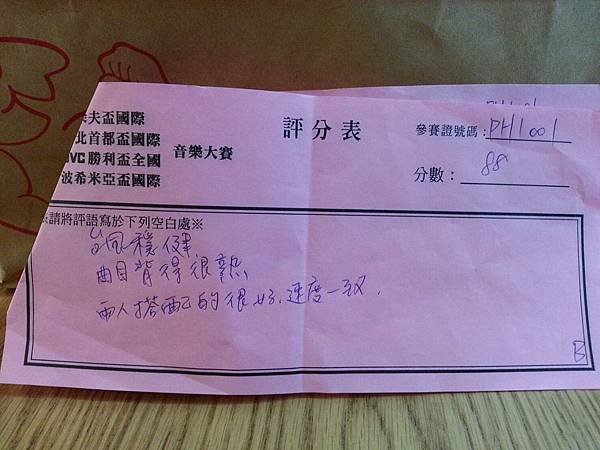 夫盃國際
北首都盃國際
VC勝利盃全國
波希米亞盃國際
音樂大賽
評分表
參賽證號碼:PH1001
分數:88
請將評語寫於下列空白處※
台風穩健.
曲目背得很熟
兩人搭配的很好,速度一致.
B